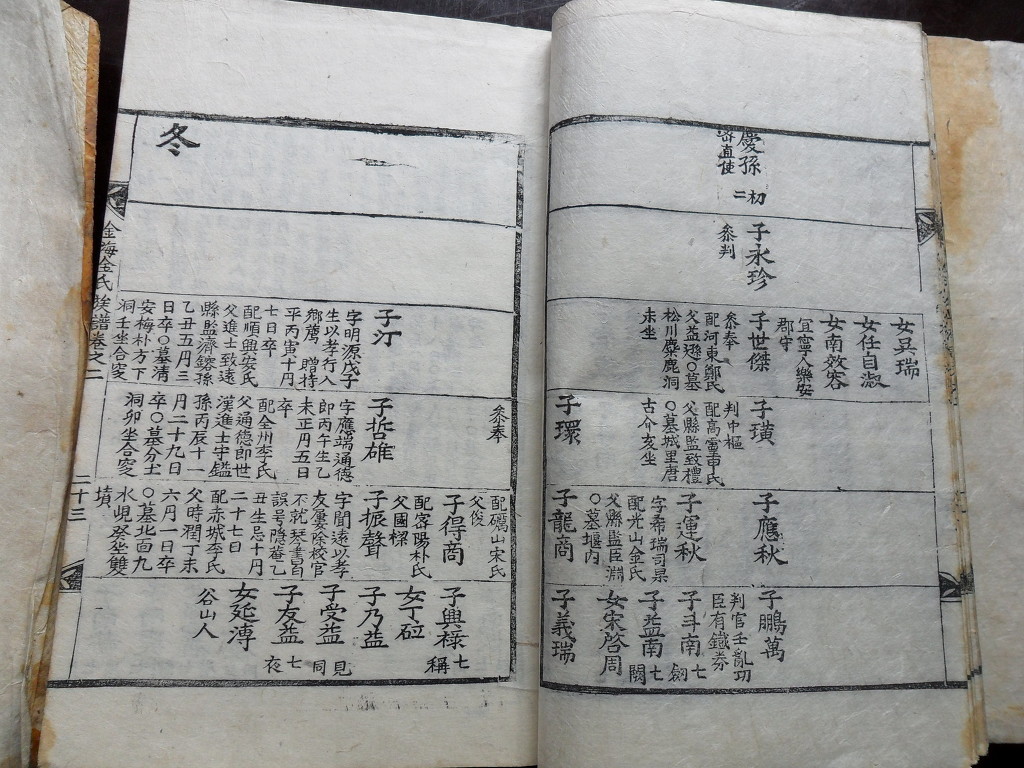 慶孫
密直使
初
二
子永珍
叅判
女吳瑞
女任自淑
女南效容
宜寧人樂安
郡守
子世傑
叅奉
配河東鄭氏
父益遜○墓
松川麋鹿洞
未坐
子璜
判中樞
配高靈申氏
父縣監致禮
○墓城里唐
古介亥坐
子環
子應秋
子運秋
字希瑞司果
配光山金氏
父縣監臣淵
○墓堰內
子龍商
子鵬萬
判官壬亂功
臣有鐵券
子斗南
七
劒
子益南
七
闕
女宋啓周
子義瑞
冬
金海金氏族譜卷之二
二十三
子汀
字明源戊子
生以孝行入
鄕薦 贈持
平丙寅十月
七日卒
配順興安氏
父進士致遠
縣監濟鎔孫
乙丑五月三
日卒○墓清
安梅朴方下
洞壬坐合窆
叅奉
子哲雄
字應端通德
郎丙午生乙
未正月五日
卒
配全州李氏
父通德郎世
漢進士守鎰
孫丙辰十一
月二十九日
卒○墓分土
洞卯坐合窆
配礪山宋氏
父俊
子得商
配密陽朴氏
父國樑
子振聲
字聞遠以孝
友屢除校官
不就
誤号隱菴乙
丑生忌十月
二十七日
配赤城李氏
父時潤丁未
六月一日卒
○墓北面九
水峴癸坐雙
墳
子興祿
七
稱
女丁砬
子乃益
子受益
見
同
子友益
七
夜
女延溥
谷山人